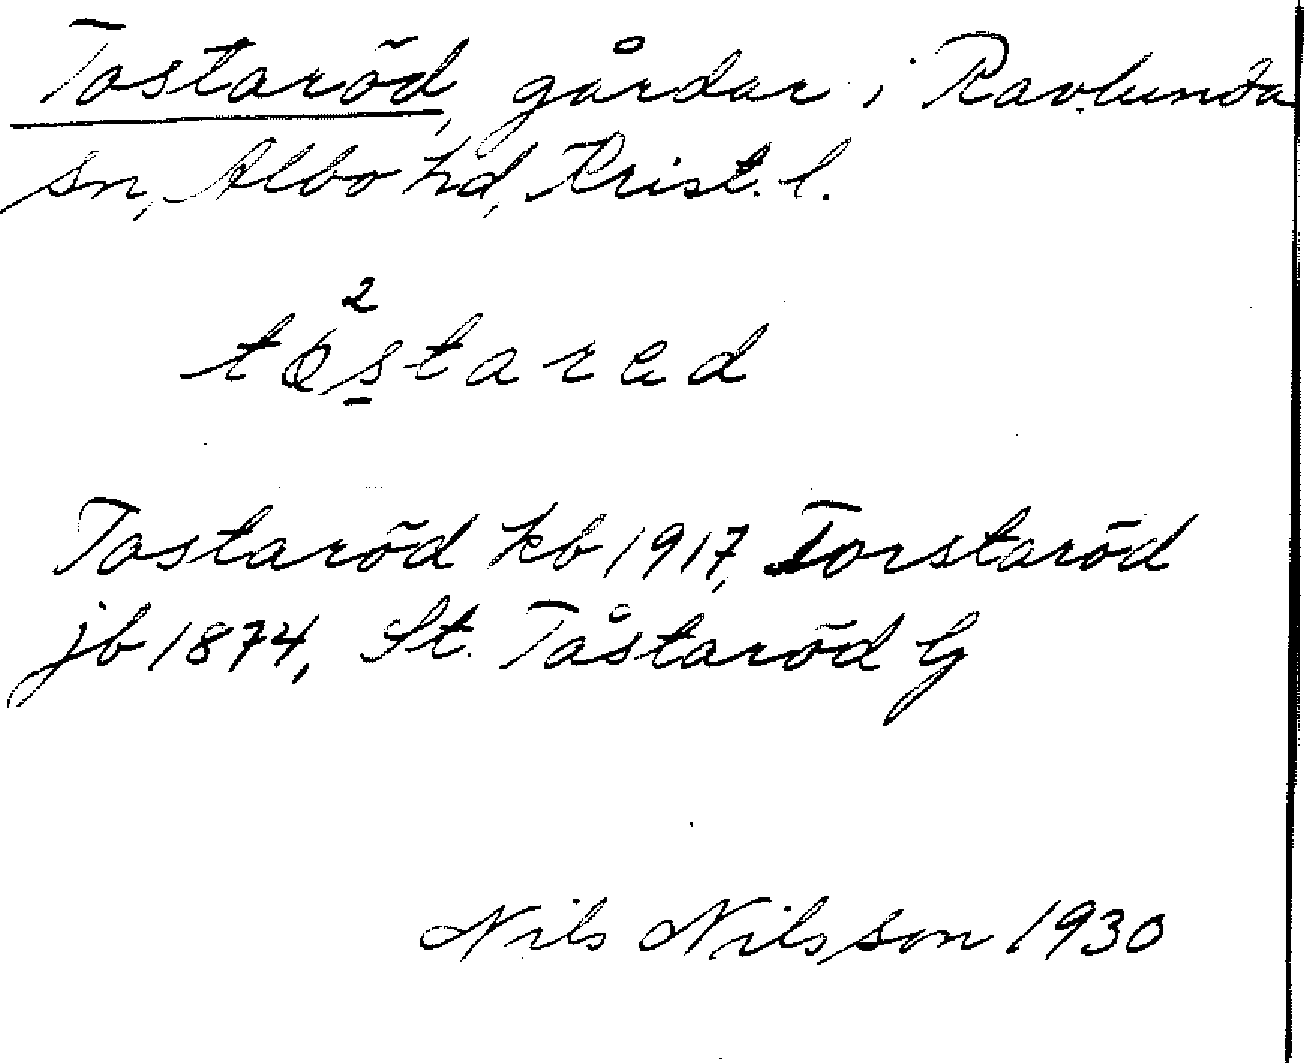 Tostaröd, gårdar i Ravlunda
sn, Albo hd, Krist. l.
2
tostarad
Tostaröd kb 1917, Torstaröd
jb 1874, St. Tåstaröd G
Nils Nilsson 1930